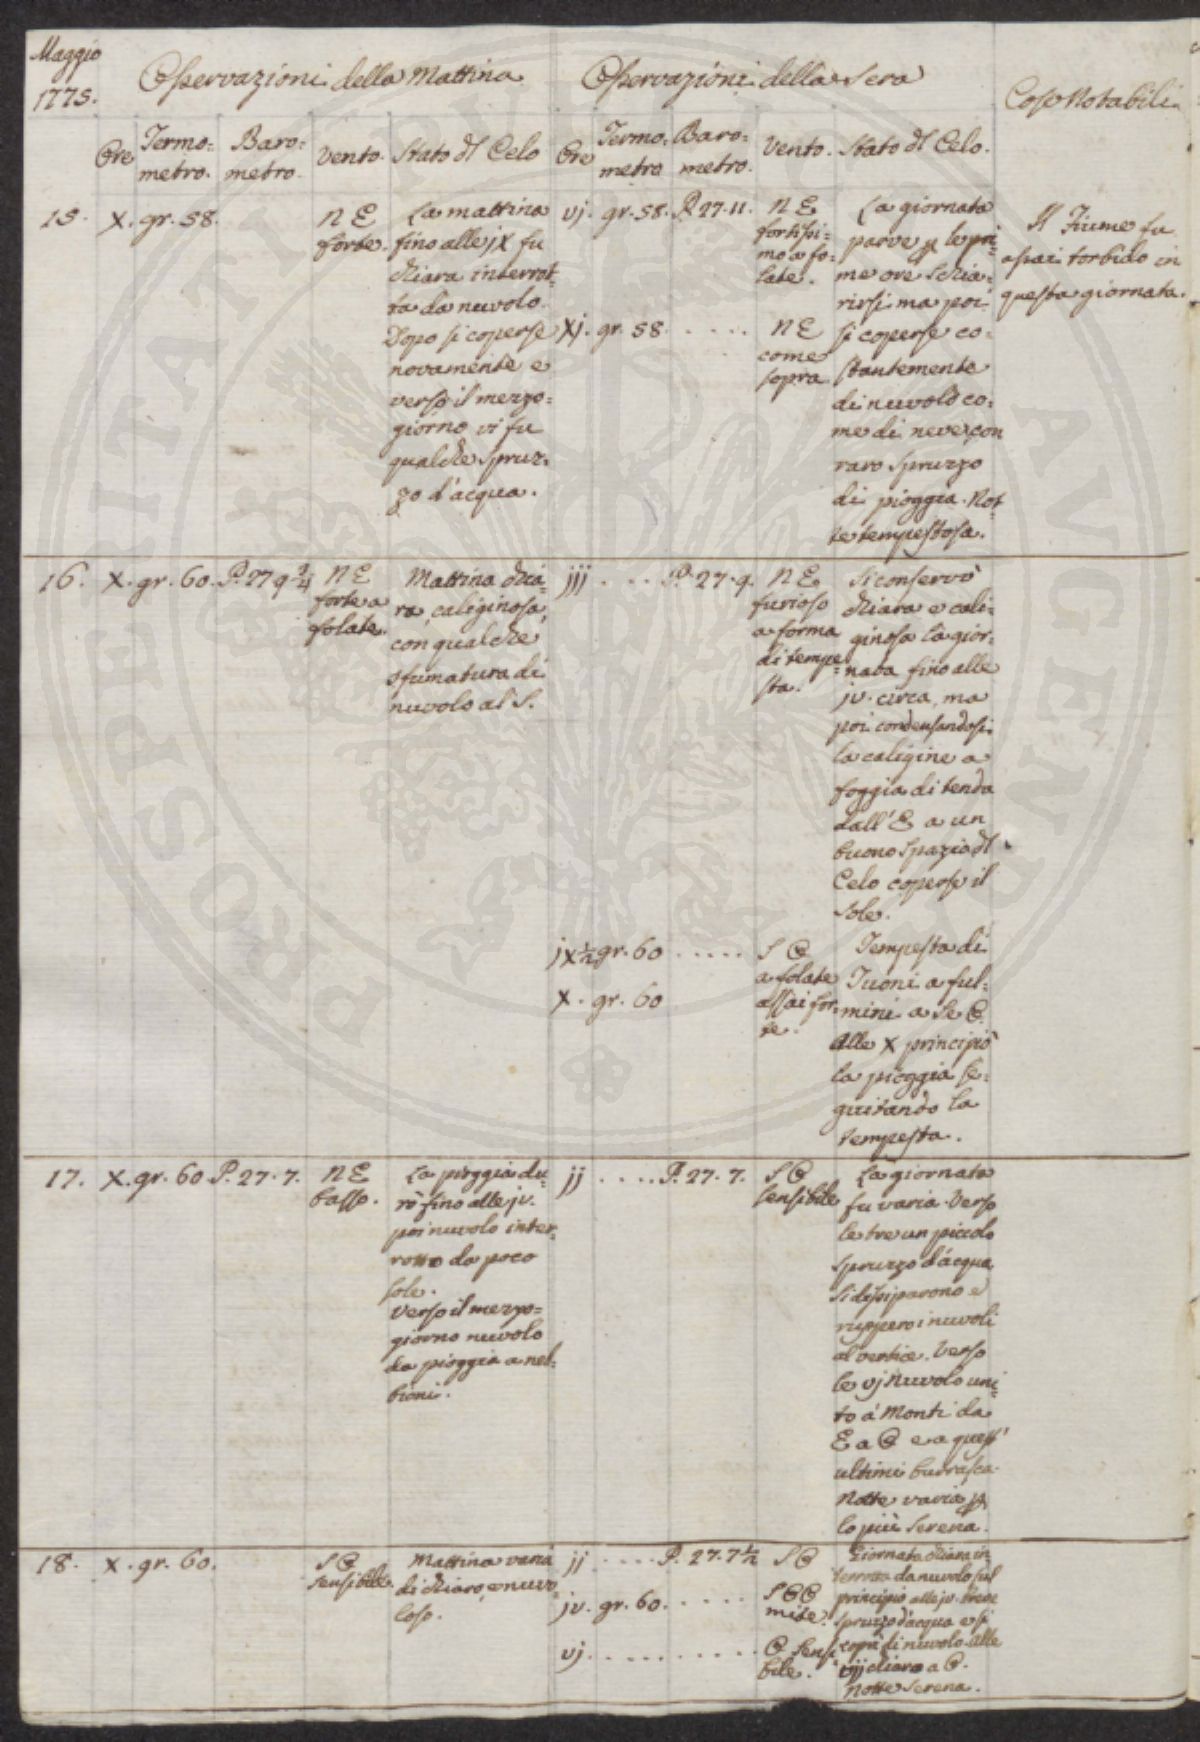 Maggio
1775.
Osservazioni della Mattina
Osservazioni della Sera
Cose Notabili
Ore
Termo=
metro.
Baro=
metro.
Vento.
Stato dl Celo
Ore
Termo=
metro
Baro=
metro.
Vento.
Stato dl Celo.
15. X. gr. 58.
N E
forte.
La mattina
fino alle jX fu
chiara interrot=
ta da nuvolo.
Dopo si coperse
novamente e
verso il mezzo=
giorno vi fu
qualche spruz=
zo d'acqua.
vj. gr. 58. P. 27. 11.
N E
fortissi=
mo a fo=
late.
Xj. gr. 58 . . . .
N E
come
sopra
La giornata
parve p le pri=
me ore schia=
rirsi ma poi
si coperse co=
stantemente
di nuvolo co=
me di neve, con
raro spruzzo
di pioggia. Not=
te tempestosa.
Il Fiume fu
assai torbido in
questa giornata.
16. X. gr. 60. P. 27 9 3/4
N E
forte a
folate.
Mattina chia=
ra, caliginosa,
con qualche
sfumatura di
nuvolo al S.
jjj . . . . P. 27. 9.
N E
furioso
a forma
di tempe=
sta.
Si conservò
chiara e cali=
ginosa la gior=
nata fino alle
jv. circa, ma
poi condensandosi
la caligine a
foggia di tenda
dall'E a un
buono spazio dl
Celo coperse il
Sole.
jX 1/2 gr. 60 . . . . .
X. gr. 60
S O
a folate
assai for=
te.
Tempesta di
Tuoni a ful=
mini a S e O.
Alle X principiò
la pioggia se=
guitando la
tempesta.
17. X. gr. 60 P. 27. 7.
N E
basso.
La pioggia du=
rò fino alle jv.
poi nuvolo inter=
rotto da poco
sole.
Verso il mezzo=
giorno nuvolo
da pioggia a neb=
bioni.
jj . . . . P. 27. 7.
S O
sensibile
La giornata
fu varia. Verso
le tre un piccolo
spruzzo d'acqua.
Si dissiparono e
ruppero i nuvoli
al vertice. Verso
le vj nuvolo uni=
to a' Monti da
E a O e a quest'
ultimi burrasca.
Notte varia p
lo più serena.
18. X. gr. 60.
S O
sensibile.
Mattina varia
di chiaro, e nuvo=
loso.
jj . . . . P. 27. 7 1/2
S O
jv. gr. 60. . . . . .
S O O
mite.
vj. . . . . . . . . .
O sensi=
bile.
Giornata chiara in=
terrotta da nuvolo sul
principio alle jv. breve
spruzzo d'acqua e si
coprì di nuvolo. Alle
vjjj chiaro a O.
Notte serena.